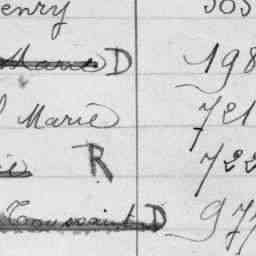 enry 505
Marie D 198
Marie 721
R 722
Toussaint D 977